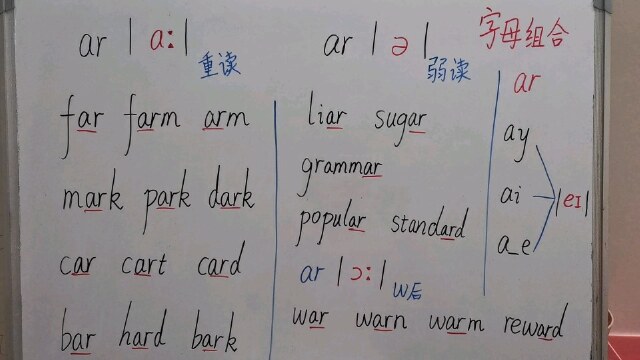 ar |ɑː| 重读
far farm arm
mark park dark
car cart card
bar hard bark
ar |ə| 弱读
liar sugar
grammar
popular standard
ar |ɔː| w后
war warn warm reward
字母组合
ar
ay
ai |eɪ|
a_e